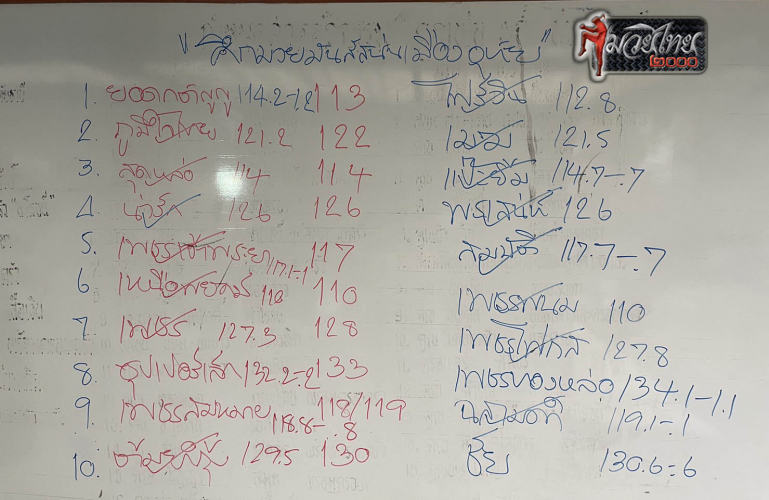 "ศึกมวยมันส์สนั่นเมืองอุทัย"
มวยไทย ๒๐๐๐
1. ยอดกตัญญู 114.2-1.2 113 ไฟร์อิน 112.8
2. ภูมิใจไทย 121.2 122 เมฆ 121.5
3. สุดหล่อ 114 114 แป๊ะยิ้ม 114.7-.7
4. 126 126 พรเสน่ห์ 126
5. เพชรเจ้าพระยา 117.1-.1 117 สมบัติ 117.7-.7
6. 110 110 เพชรพนม 110
7. เพชร 127.3 128 เพชรโฟกัส 127.8
8. ซุปเปอร์เล็ก 132.2-.2 133 เพชรทองหล่อ 134.1-1.1
9. เพชรสมหมาย 118.8-.8 118/119 ฉลามดำ 119.1-.1
10. 129.5 130 ชัย 130.6-.6